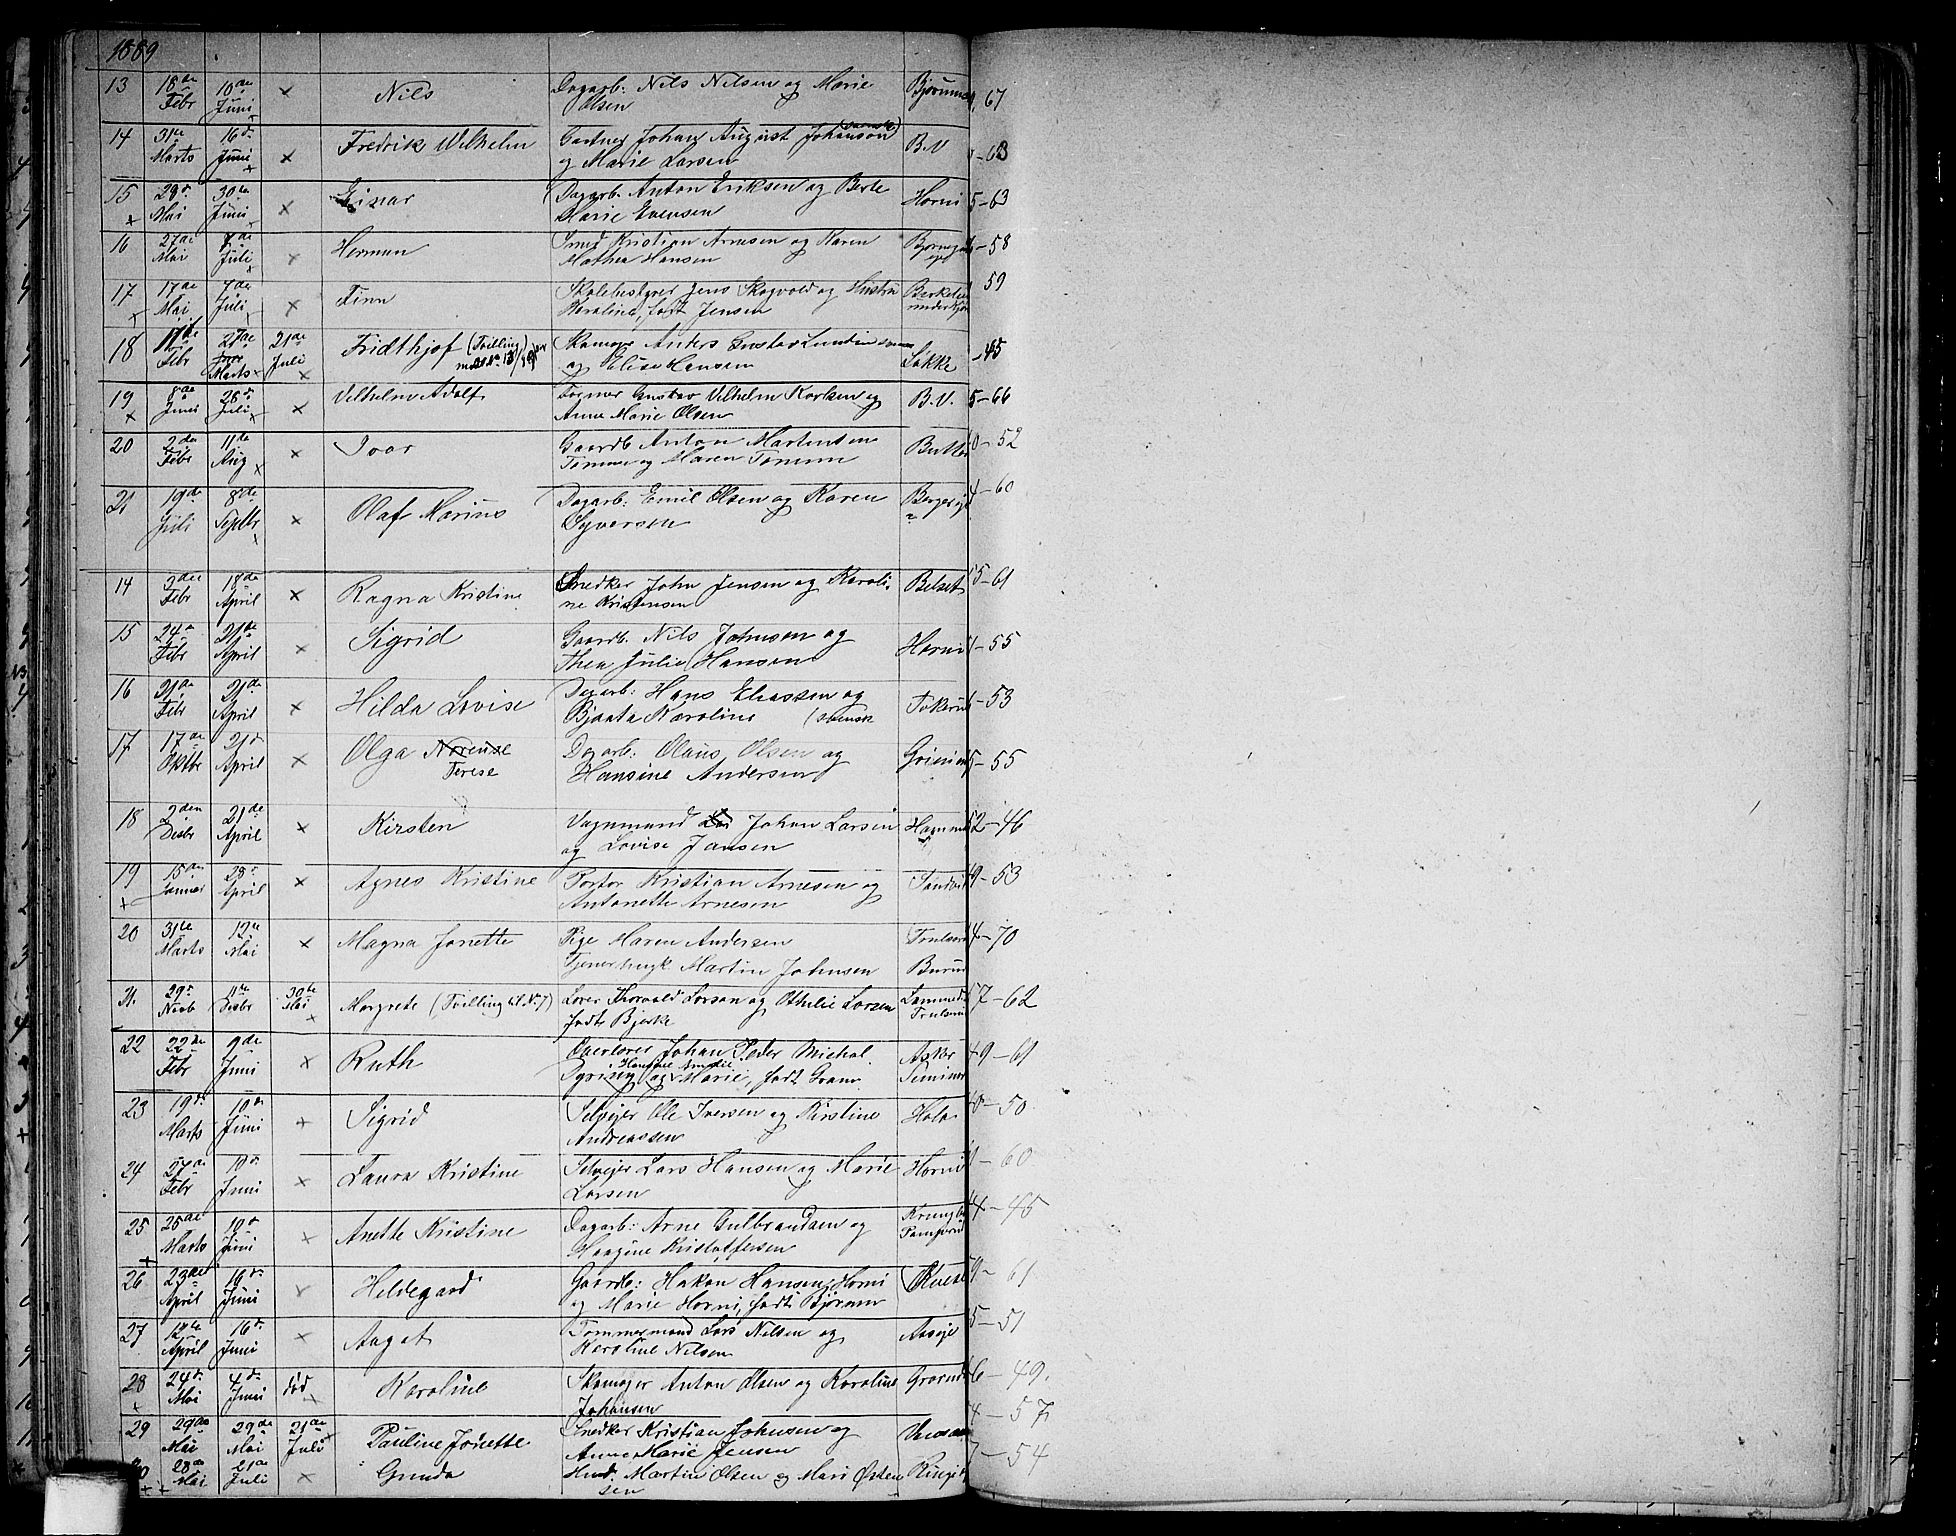 1889
13 18de Febr 10de Juni × Nils Dagarb: Nils Nilsen og Marie Bjørum 67
Olsen
14 31te Marts 16de Juni × Fredrik Vilhelm Gartner Johan August Johanson (svensk) B.V. 63
og Marie Larsen
15 29de Mai 30te Juni × Einar Dagarb. Anton Eriksen og Berte Horni 5-63
Marie Evensen
16 27de Mai 7de Juli × Herman Smed Kristian Arnesen og Karen -58
Mathea Hansen
17 17de Mai 7de Juli × Finn Skolebestyrer Jens Skogvold og Hustru 59
Karoline, født Jensen
18 11te Febr 27de Marts 21de Juli × Fridthjof (Tvilling) Skomager Anders Gustav Lundin Løkke -45
og Elise Hansen
19 8de Juni 28de Juli × Vilhelm Adolf Former Gustav Vilhelm Karlsen og B.V. 5-66
Anne Marie Olsen
20 2den Febr 11te Aug × Ivar Gaardb. Anton Martinsen 0-52
Tømme og Maren Tømme
21 19de Juli 8de Septbr × Olaf Marius Dagarb: Emil Olsen og Karen 4-60
Syversen
14 2den Febr 18de April × Ragna Kristine Snedker John Jensen og Karoli- Belset 55-61
ne Kristensen
15 24de Febr 21de April × Sigrid Gaardb. Nils Johnsen og Horni 1-55
Thea Julie Hansen
16 21de Febr 21de April × Hilda Lovise Dagarb: Hans Eliassen og Tokerud -53
Bjaata Karoline (svensk
17 17de Oktbr 21de April × Olga Norense Dagarb: Olaus Olsen og Grini 5-55
Terese Hansine Andersen
18 2den Desbr 21de April × Kirsten Vognmand Johan Larsen 52-46
og Lovise Jansen
19 15de Januar 28de April × Agnes Kristine Portør Kristian Arnesen og Sandvik 49-53
Antonette Arnesen
20 31te Marts 12te Mai × Magna Jonette Pige Maren Andersen 4-70
Tjener Martin Johnsen Burud
21. 29de Novb 11te Desbr 30te Mai × Margrete (Tvilling til No. 7) Lærer Thorvald Larsen og Othelie Larsen 57-62
født Bjerke
22 22de Febr 9de Juni × Ruth Overlærer Johan Peder Michal Asker 49-61
Hansine Amalie
Dyring og Marie, født Gram Seminar
23 19de Marts 10de Juni × Sigrid Selveier Ole Iversen og Kirstine Hola -50
Andreassen
24 27de Febr 10de Juni × Laura Kristine Selveier Lars Hansen og Marie Horni 1-60
Larsen
25 25de Marts 10de Juni × Anette Kristine Dagarb: Arne Gulbrandsen og 4-45
Haagine Kristoffersen
26 23de April 10de Juni × Hildegard Gaardb: Hakon Hansen Horni 9-61
og Marie Horni, født Bjørum
27 12te April 16de Juni × Aagot Tømmermand Lars Nilsen og 5-51
Karoline Nilsen
28 24de Mai 4de Juni død × Karoline Skomager Anton Olsen og Karoline 6-49.
Johansen
29 29de Mai 29de Mai 21de Juli Pauline Jonette Snedker Kristian Johnsen og 4-57
Anne Marie Jensen
30 28de Mai 21de Juli × Gunda Husd. Martin Olsen og Mari Østen 7-54
sen